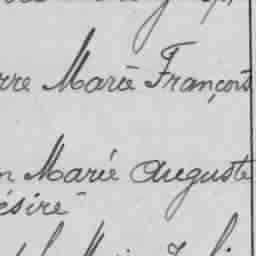 rre Marie François
n Marie Auguste
ésiré